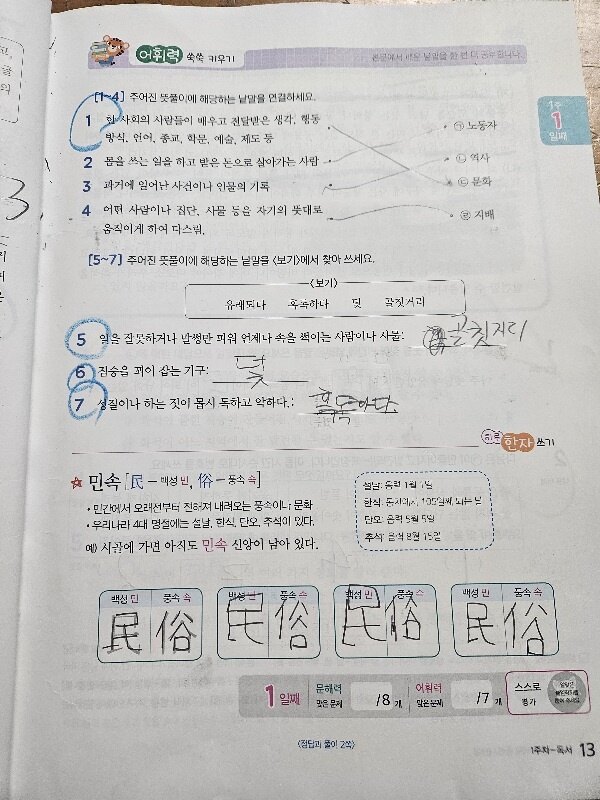 어휘력 쑥쑥 키우기
[1~4] 주어진 뜻풀이에 해당하는 낱말을 연결하세요.
1 한 사회의 사람들이 배우고 전달받은 생각, 행동
방식, 언어, 종교, 학문, 예술, 제도 등
㉠ 노동자
2 몸을 쓰는 일을 하고 받은 돈으로 살아가는 사람
㉡ 역사
3 과거에 일어난 사건이나 인물의 기록
㉢ 문화
4 어떤 사람이나 집단, 사물 등을 자기의 뜻대로
움직이게 하여 다스림.
㉣ 지배
1주
1
일째
[5~7] 주어진 뜻풀이에 해당하는 낱말을 <보기>에서 찾아 쓰세요.
<보기>
유래되다 혹독하다 덫 골칫거리
5 일을 잘못하거나 말썽만 피워 언제나 속을 썩이는 사람이나 사물:
6 짐승을 꾀어 잡는 기구: 덫
7 성질이나 하는 짓이 몹시 독하고 악하다.:
하루 한자 쓰기
민속 [民 - 백성 민, 俗 - 풍속 속]
• 민간에서 오래전부터 전해져 내려오는 풍속이나 문화
• 우리나라 4대 명절에는 설날, 한식, 단오, 추석이 있다.
예) 시골에 가면 아직도 민속 신앙이 남아 있다.
설날: 음력 1월 1일
한식: 동지에서 105일째 되는 날
단오: 음력 5월 5일
추석: 음력 8월 15일
백성 민 풍속 속 백성 민 풍속 속 백성 민 풍속 속 백성 민 풍속 속
民 俗 民 俗 民 俗 民 俗
1 일째
문해력
맞은 문제 /8 개
어휘력
맞은 문제 /7 개
스스로
평가
<정답과 풀이 2쪽>
1주차-독서 13